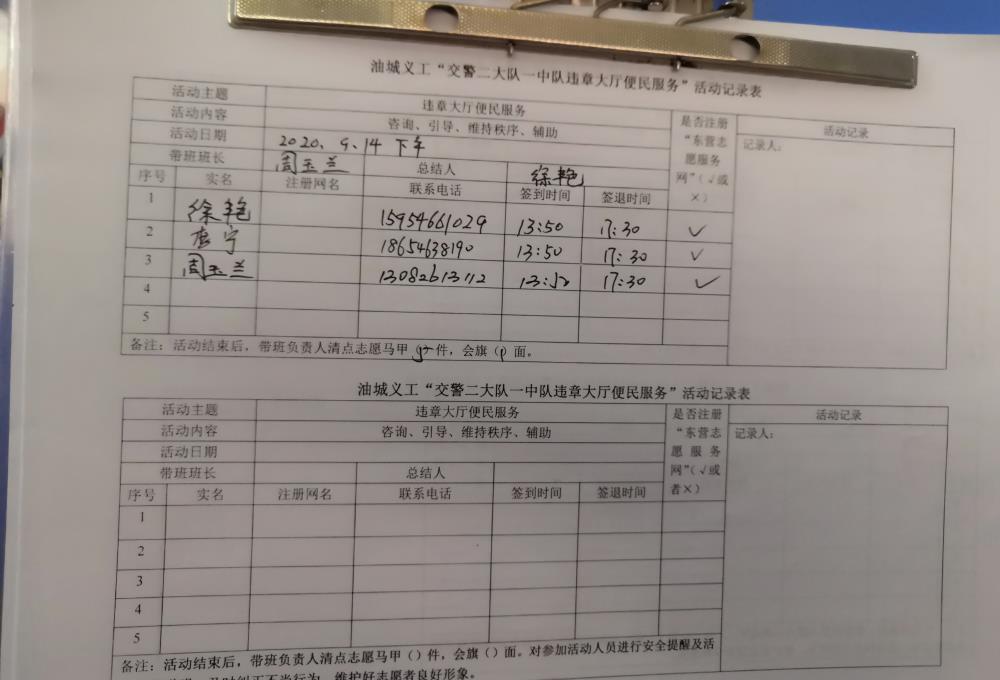 油城义工“交警二大队一中队违章大厅便民服务”活动记录表
活动主题 违章大厅便民服务 是否注册“东营志愿服务网”（√或×） 活动记录
活动内容 咨询、引导、维持秩序、辅助 记录人：
活动日期 2020、9、14 下午
带班班长 周玉兰 总结人 徐艳
序号 实名 注册网名 联系电话 签到时间 签退时间
1 徐艳 15954661029 13:50 17:30 √
2 唐宁 18654638190 13:50 17:30 √
3 周玉兰 13082613112 13:50 17:30 √
4
5
备注：活动结束后，带班负责人清点志愿马甲 件，会旗（ 面。
油城义工“交警二大队一中队违章大厅便民服务”活动记录表
活动主题 违章大厅便民服务 是否注册“东营志愿服务网”（√或者×） 活动记录
活动内容 咨询、引导、维持秩序、辅助 记录人：
活动日期
带班班长 总结人
序号 实名 注册网名 联系电话 签到时间 签退时间
1
2
3
4
5
备注：活动结束后，带班负责人清点志愿马甲（）件，会旗（）面。对参加活动人员进行安全提醒及活
及时纠正不当行为，维护好志愿者良好形象。